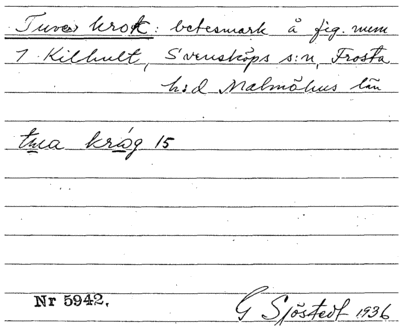 Tuves krok: betesmark å fig. num
7 Kilhult, Svensköps s:n, Frosta
h:d Malmöhus län
tua kråg 15
Nr 5942.
G Sjöstedt 1936